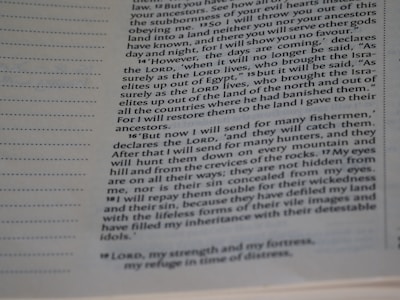 law. 12 But you have
your ancestors. See how all of
the stubbornness of your evil hearts instead
obeying me. 13 So I will throw you out of this
land into a land neither you nor your ancestors
have known, and there you will serve other gods
day and night, for I will show you no favour.'
14 'However, the days are coming,' declares
the LORD, 'when it will no longer be said, "As
surely as the LORD lives, who brought the Isra-
elites up out of Egypt," 15 but it will be said, "As
surely as the LORD lives, who brought the Isra-
elites up out of the land of the north and out of
all the countries where he had banished them."
For I will restore them to the land I gave to their
ancestors.
16 'But now I will send for many fishermen,'
declares the LORD, 'and they will catch them.
After that I will send for many hunters, and they
will hunt them down on every mountain and
hill and from the crevices of the rocks. 17 My eyes
are on all their ways; they are not hidden from
me, nor is their sin concealed from my eyes.
18 I will repay them double for their wickedness
and their sin, because they have defiled my land
with the lifeless forms of their vile images and
have filled my inheritance with their detestable
idols.'
19 LORD, my strength and my fortress,
my refuge in time of distress,